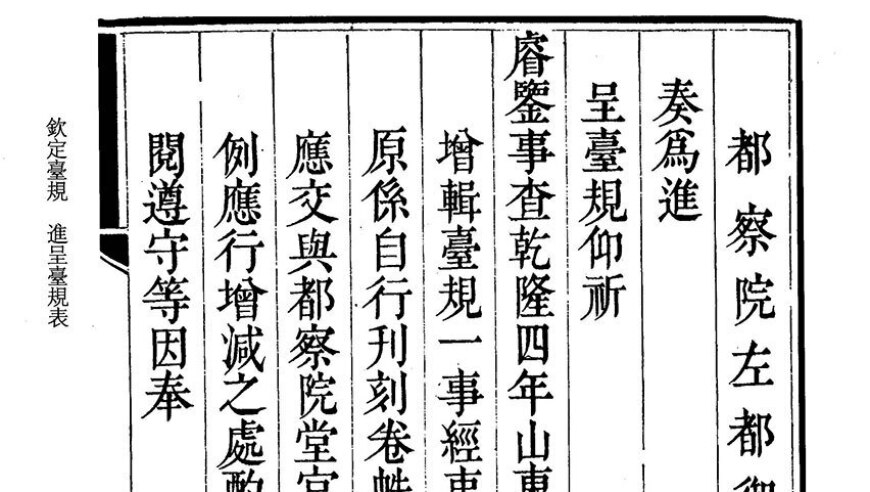 都察院左都御
奏爲進
呈臺規仰祈
睿鑒事查乾隆四年山東
增輯臺規一事經吏
原係自行刊刻卷
應交與都察院堂官
例應行增減之處酌
閱遵守等因奉
欽定臺規 進呈臺規表